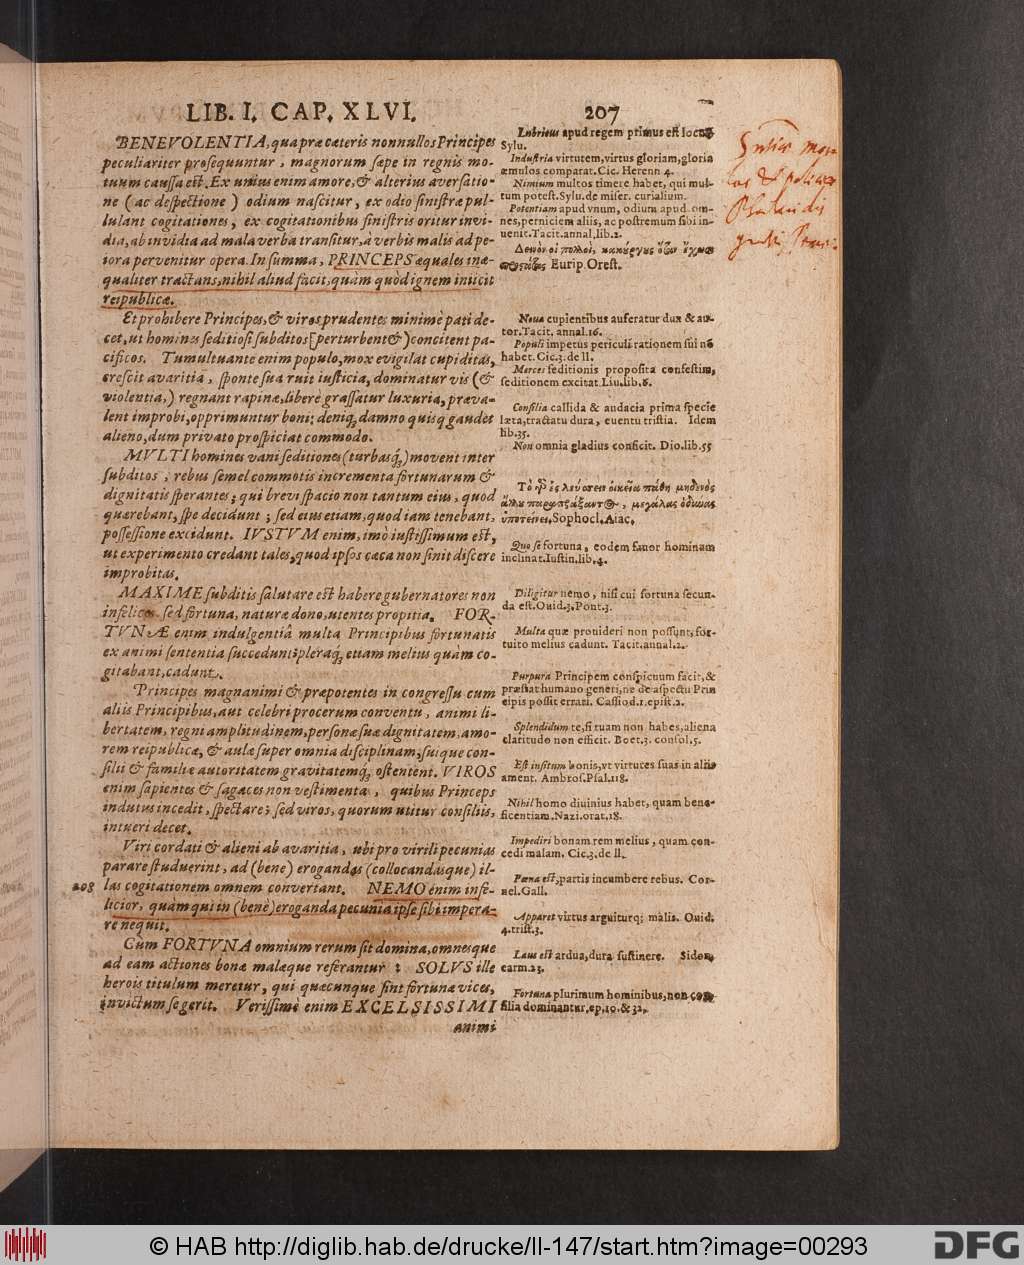 LIB. I. CAP. XLVI.
207
BENEVOLENTIA, qua præ cæteris nonnullos Principes
peculiariter prosequuntur, magnorum sæpe in regnis mo-
tuum caussa est. Ex unius enim amore, & alterius aversatio-
ne (ac despectione) odium nascitur, ex odio sinistræ pul-
lulant cogitationes, ex cogitationibus sinistris oritur invi-
dia, ab invidia ad mala verba transitur, à verbis malis ad pe-
iora pervenitur opera. In summa, PRINCEPS æquales inæ-
qualiter tractans, nihil aliud facit, quàm quòd ignem iniicit
reipublicæ.
Et prohibere Principes, & viros prudentes minimè pati de-
cet, ut homines seditiosi subditos [perturbent &) concitent pa-
cificos. Tumultuante enim populo, mox evigilat cupiditas,
crescit avaritia, sponte sua ruit iusticia, dominatur vis (&
violentia,) regnant rapinæ, liberè grassatur luxuria, præva-
lent improbi, opprimuntur boni: deniq; damno quisq; gaudet
alieno, dum privato prospiciat commodo.
MVLTI homines vani seditiones (turbasq́;) movent inter
subditos, rebus semel commotis incrementa fortunarum &
dignitatis sperantes; qui brevi spacio non tantum eius, quod
quærebant, spe decidunt; sed eius etiam, quod iam tenebant,
possessione excidunt. IVSTVM enim, imò iustissimum est,
ut experimento credant tales, quod ipsos cæca non sinit discere
improbitas.
MAXIME subditis salutare est habere gubernatores non
infelices sed fortuna, naturæ dono, utentes propitia. FOR-
TVNÆ enim indulgentiâ multa Principibus fortunatis
ex animi sententia succedunt: pleraq́; etiam melius quàm co-
gitabant, cadunt.
Principes magnanimi & præpotentes in congressu cum
aliis Principibus, aut celebri procerum conventu, animi li-
bertatem, regni amplitudinem, personæ suæ dignitatem, amo-
rem reipublicæ, & aulæ super omnia disciplinam, suique con-
silii & familiæ autoritatem gravitatemq́; ostentent. VIROS
enim sapientes & sagaces non vestimenta, quibus Princeps
indutus incedit, spectare; sed viros, quorum utitur consiliis,
intueri decet.
Viri cordati & alieni ab avaritia, ubi pro virili pecunias
parare studuerint, ad (bene) erogandas (collocandasque) il-
208
las cogitationem omnem convertant. NEMO enim infe-
licior, quàm qui in (benè) eroganda pecunia ipse sibi impera-
re nequit.
Cum FORTVNA omnium rerum sit domina, omnesque
ad eam actiones bonæ malæque referantur: SOLVS ille
herois titulum meretur, qui quæcunque sint fortunæ vices,
invictum se gerit. Verissimè enim EXCELSISSIMI
animi
Lubricus apud regem primus est locus
Sylu.
Industria virtutem, virtus gloriam, gloria
æmulos comparat. Cic. Herenn 4.
Nimium multos timere habet, qui mul-
tum potest. Sylu. de miser. curialium.
Potentiam apud vnum, odium apud om-
nes, perniciem aliis, ac postremum sibi in-
uenit. Tacit. annal. lib. 2.
Δεινὸν οἱ πολλοὶ, κακούργους ὅταν ἔχωσι
προστάτας Eurip. Orest.
Noua cupientibus auferatur dux & au-
tor. Tacit. annal. 16.
Populi impetus periculi rationem sui nō
habet. Cic. 3. de ll.
Merces seditionis proposita confestim,
seditionem excitat. Liu. lib. 6.
Consilia callida & audacia prima specie
læta, tractatu dura, euentu tristia. Idem
lib. 35.
Non omnia gladius conficit. Dio. lib. 55
Τὸ γὰρ ἐς λεύσσειν οἰκεῖα πάθη μηδενὸς
ἄλλου παραπράξαντος, μεγάλας ὀδύνας
ὑποτείνει. Sophocl. Aiac.
Quo se fortuna, eodem fauor hominum
inclinat. Iustin. lib. 4.
Diligitur nemo, nisi cui fortuna secun-
da est. Ouid. 3. Pont. 3.
Multa quæ prouideri non possunt, for-
tuito melius cadunt. Tacit. annal. 2.
Purpura Principem conspicuum facit, &
præstat humano generi, ne de aspectu Prin
cipis possit errari. Cassiod. 1. epist. 2.
Splendidum te, si tuam non habes, aliena
claritudo non efficit. Boet. 3. consol. 5.
Est insitum bonis, vt virtutes suas in aliis
ament. Ambros. Psal. 118.
Nihil homo diuinius habet, quam bene-
ficentiam. Nazi. orat. 18.
Impediri bonam rem melius, quam con-
cedi malam. Cic. 3. de ll.
Pœna est, partis incumbere rebus. Cor-
nel. Gall.
Apparet virtus arguiturq; malis. Ouid.
4. trist. 3.
Laus est ardua, dura sustinere. Sidon,
carm. 23.
Fortuna plurimum hominibus, non con-
silia dominantur, ep. 10. & 32.
© HAB http://diglib.hab.de/drucke/ll-147/start.htm?image=00293
DFG